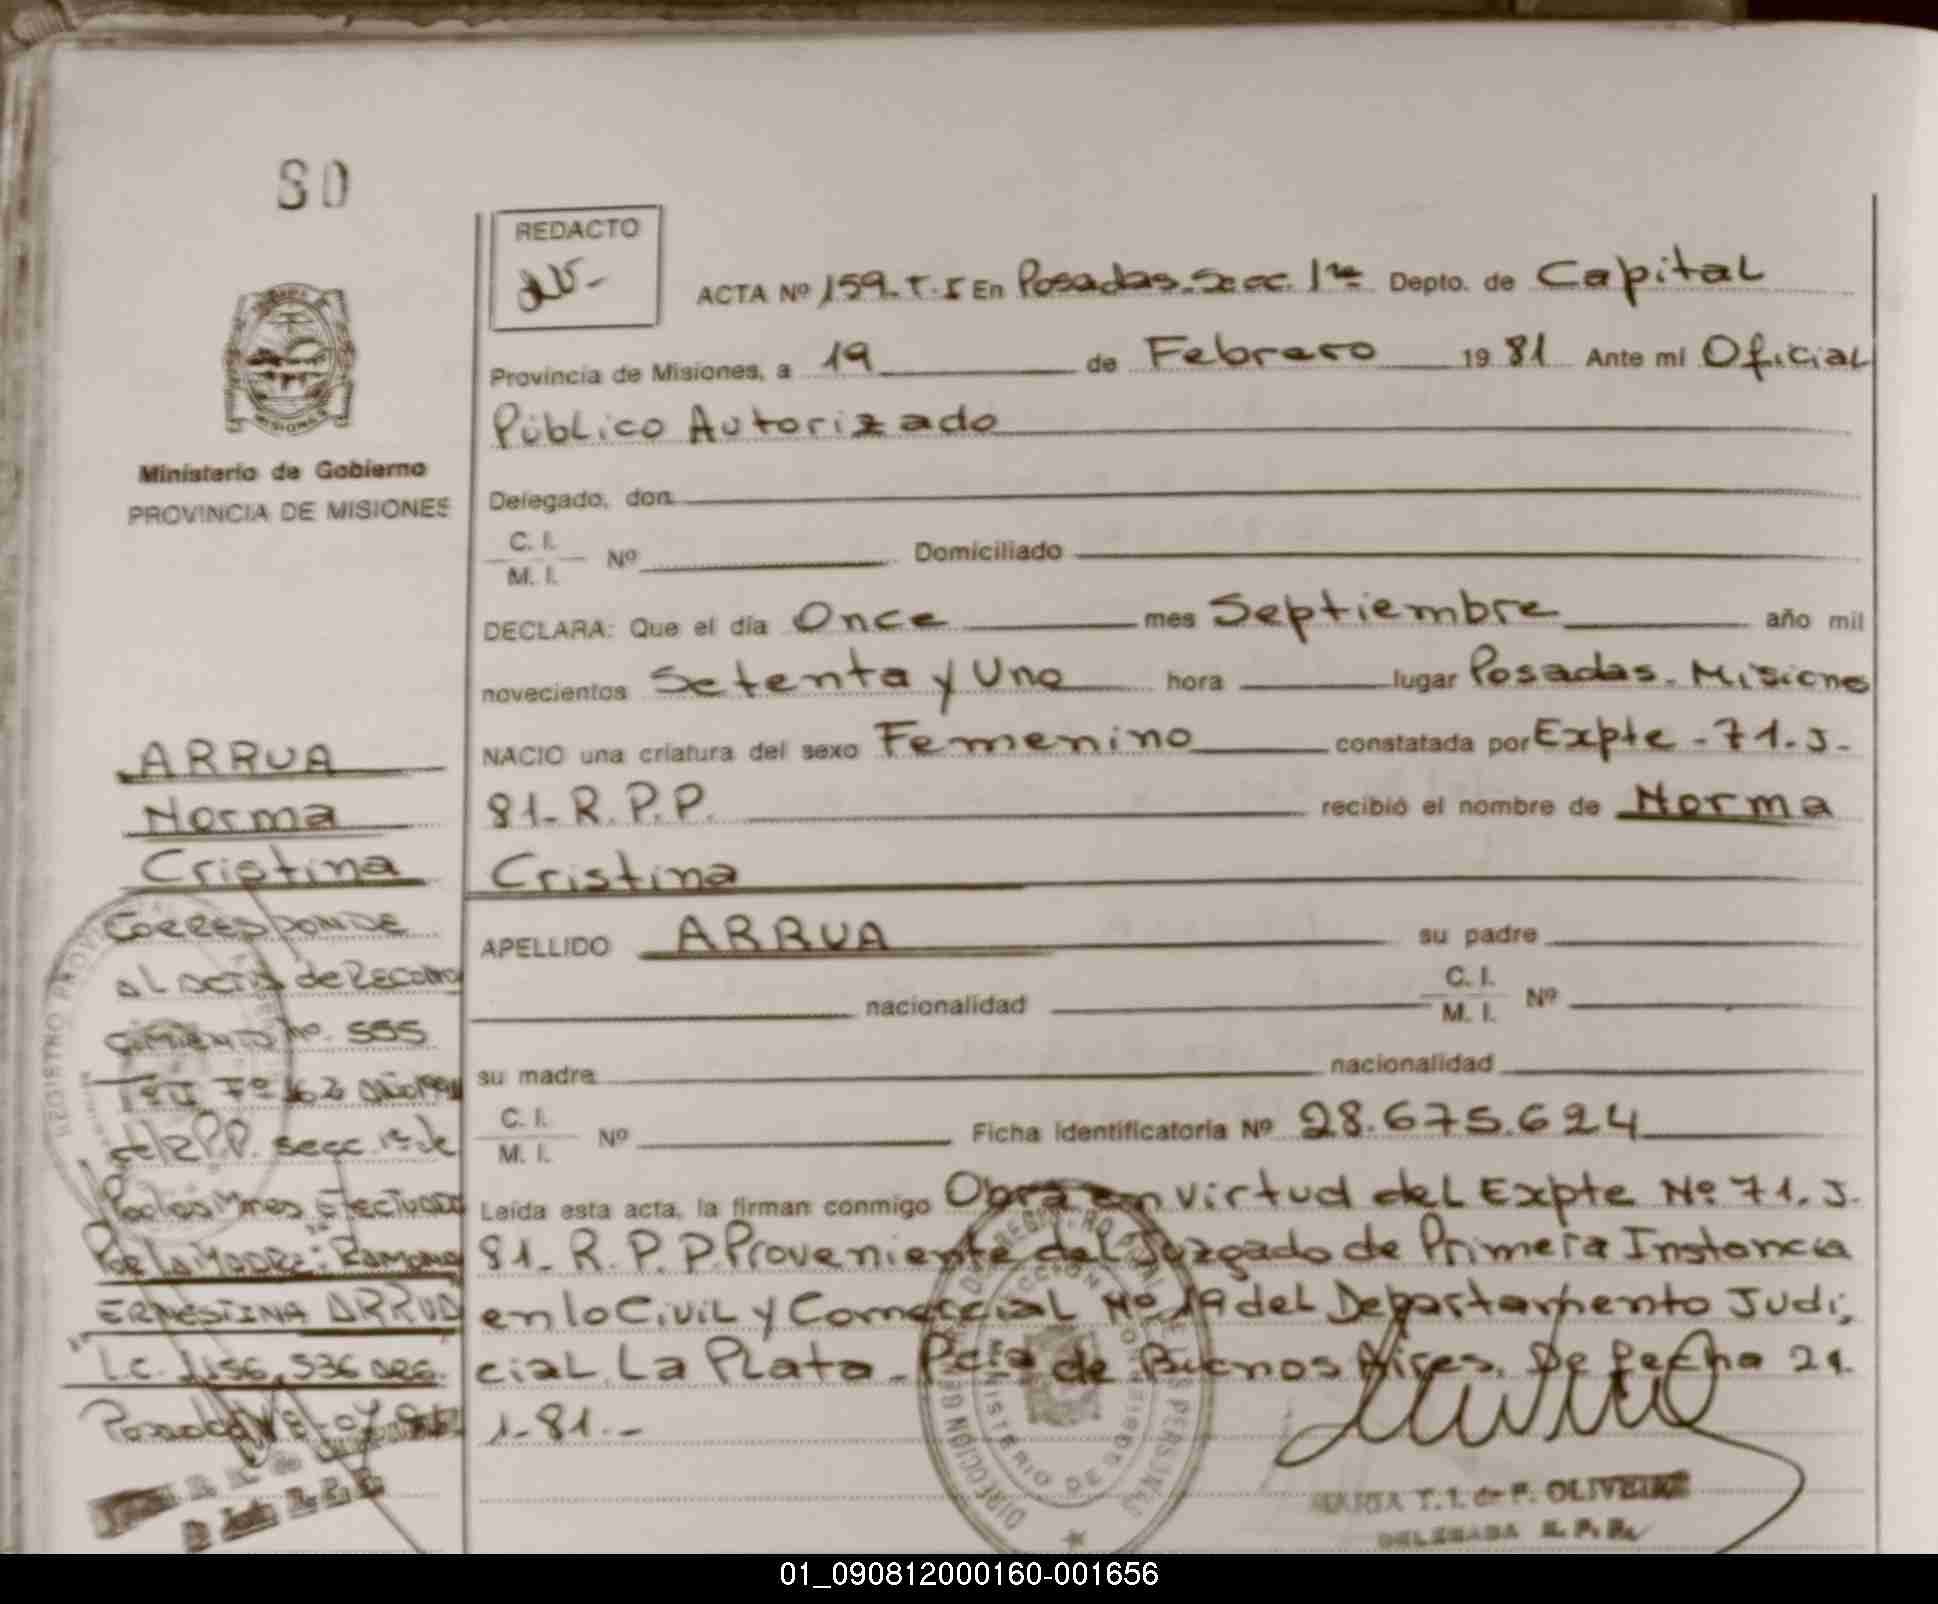 80
REDACTO
ACTA Nº 159. T. I En Posadas. Secc. 1ra Depto. de Capital
Provincia de Misiones, a 19 de Febrero 1981 Ante mi Oficial
Público Autorizado
Delegado, don
C. I.
M. I. Nº Domiciliado
DECLARA: Que el día Once mes Septiembre año mil
novecientos Setenta y Uno hora lugar Posadas. Misiones
NACIO una criatura del sexo Femenino constatada por Expte - 71. J.
81- R. P. P. recibió el nombre de Norma
Cristina
APELLIDO ARRUA su padre
nacionalidad C. I.
M. I. Nº
su madre nacionalidad
C. I.
M. I. Nº Ficha identificatoria Nº 28.675.624
Leída esta acta, la firman conmigo Obra en virtud del Expte Nº 71. J.
81- R. P. P. Proveniente del Juzgado de Primera Instancia
en lo Civil y Comercial Nº 19 del Departamento Judi,
cial La Plata - Pcia de Buenos Aires. De fecha 21.
1-81.-
Ministerio de Gobierno
PROVINCIA DE MISIONES
ARRUA
Norma
Cristina
CORRESPONDE
al acta de Recono
cimiento Nº 555
Fº 162 año
R.P.P. secc. 1ra de
Posadas Mnes Efectuado
Por la MADRE: RAMONA
ERNESTINA ARRUA
L.C. ARG.
Posadas
REGISTRO PROV
MINISTERIO DE GOBIERNO
T. I. de F. OLIVEIRA
DELEGADA R. P. P.
01_090812000160-001656